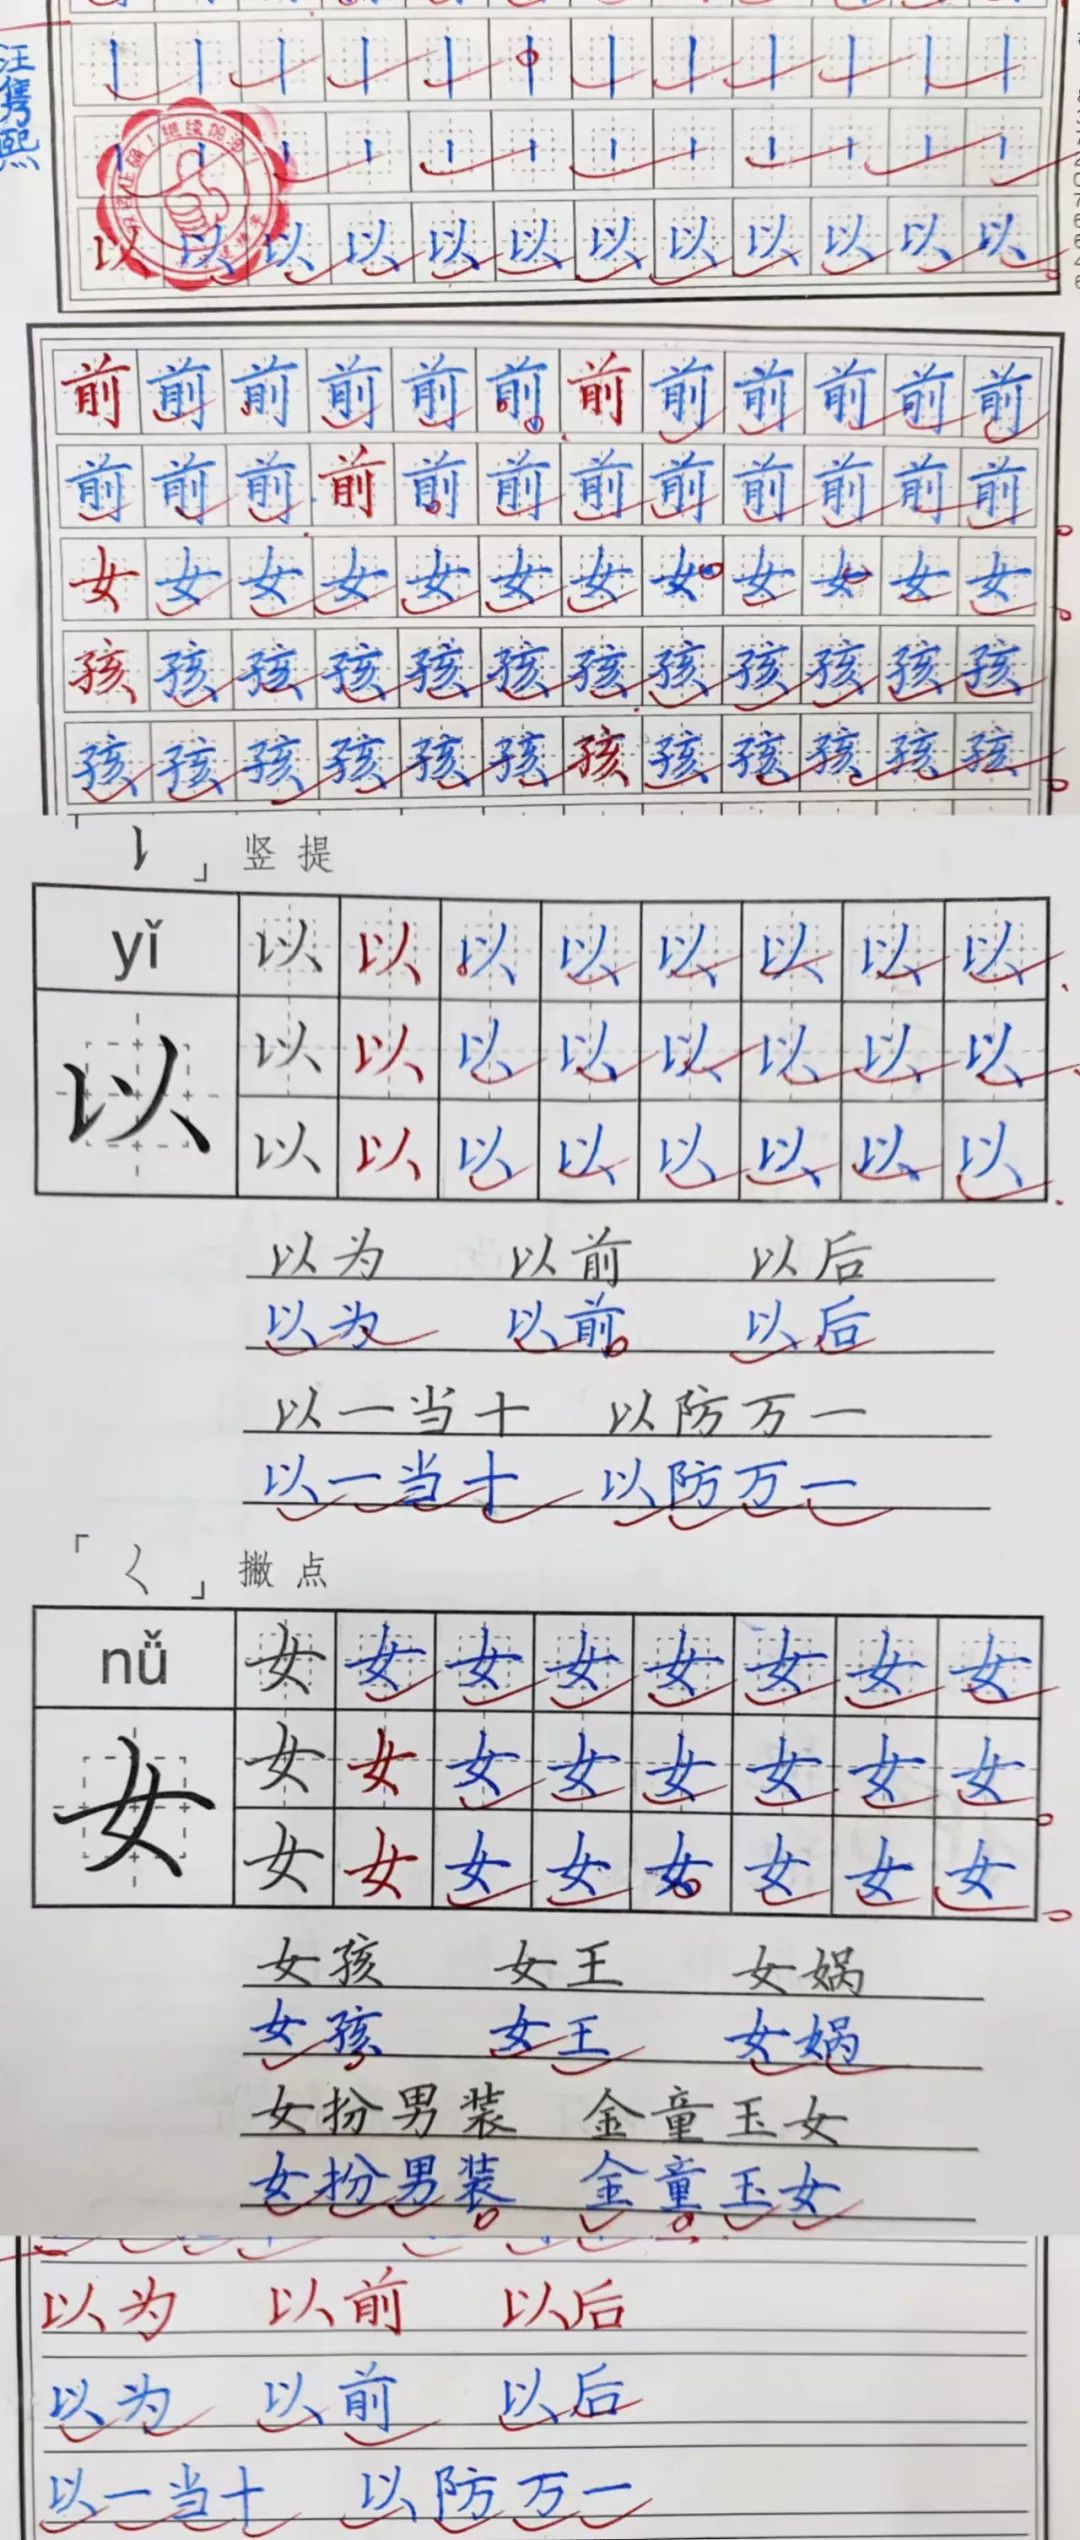 汪隽熙
以以以以以以以以以以以以
前前前前前前前前前前前前
前前前前前前前前前前前前
女女女女女女女女女女女女
孩孩孩孩孩孩孩孩孩孩孩孩
孩孩孩孩孩孩孩孩孩孩孩孩
」竖提
yǐ 以以以以以以以以
以 以以以以以以以以
以以以以以以以以
以为 以前 以后
以为 以前 以后
以一当十 以防万一
以一当十 以防万一
「ㄑ」撇点
nǚ 女女女女女女女女
女 女女女女女女女女
女女女女女女女女
女孩 女王 女娲
女孩 女王 女娲
女扮男装 金童玉女
女扮男装 金童玉女
以为 以前 以后
以为 以前 以后
以一当十 以防万一